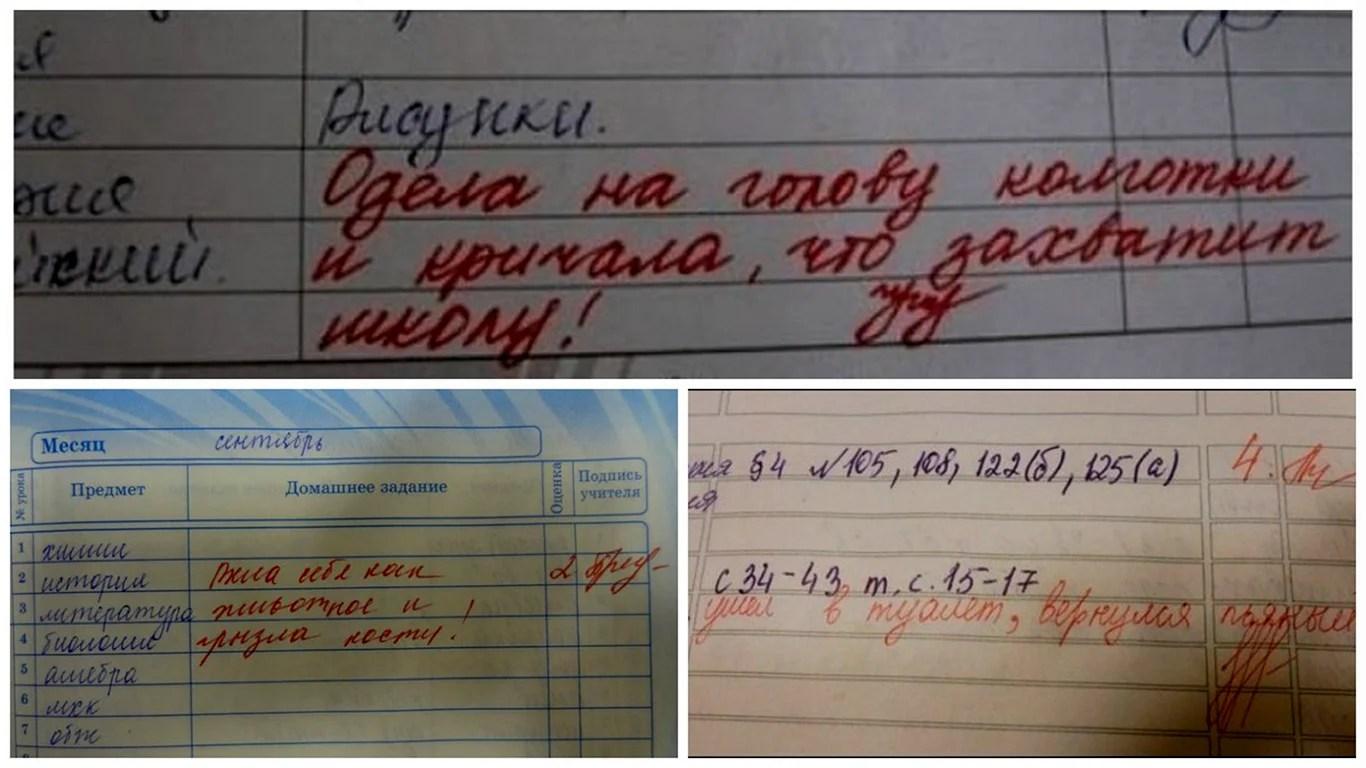 Рисунки.
Одела на голову колготки
и кричала, что захватит
школу!
Месяц сентябрь
№ урока Предмет Домашнее задание Оценка Подпись учителя
1 химия
2 история Вела себя как 2
3 литература животное и
4 биология грызла кости!
5 алгебра
6 мхк
7 обж
§4 №105, 108, 122(б), 125(а) 4
с 34-43, т. с. 15-17
ушел в туалет, вернулся пьяный